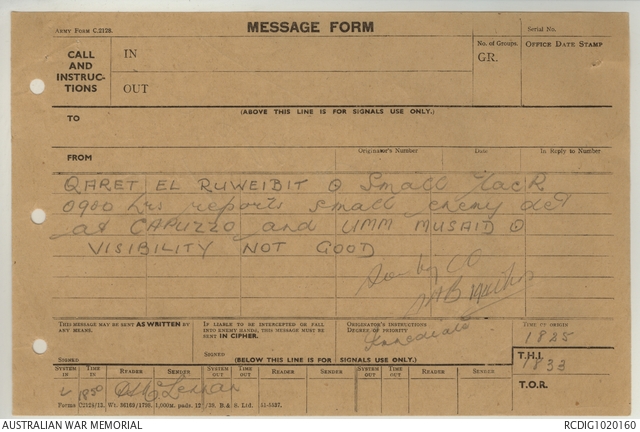 ARMY FORM C.2128.
MESSAGE FORM
Serial No.
CALL AND INSTRUC- TIONS
IN
OUT
No. of Groups.
GR.
OFFICE DATE STAMP
(ABOVE THIS LINE IS FOR SIGNALS USE ONLY.)
TO
FROM
Originator's Number
Date
In Reply to Number
QARET EL RUWEIBIT ⊙ Small
0900 hrs reports small enemy det
at CAPUZZO and UMM MUSAID ⊙
VISIBILITY NOT GOOD
Seen by CO
THIS MESSAGE MAY BE SENT AS WRITTEN BY ANY MEANS.
SIGNED
IF LIABLE TO BE INTERCEPTED OR FALL INTO ENEMY HANDS, THIS MESSAGE MUST BE SENT IN CIPHER.
SIGNED
ORIGINATOR'S INSTRUCTIONS
DEGREE OF PRIORITY
Immediate
TIME OF ORIGIN
1825
T.H.I.
1833
T.O.R.
(BELOW THIS LINE IS FOR SIGNALS USE ONLY.)
SYSTEM IN TIME IN READER SENDER SYSTEM OUT TIME OUT READER SENDER SYSTEM OUT TIME OUT READER SENDER
1850
AUSTRALIAN WAR MEMORIAL
RCDIG1020160